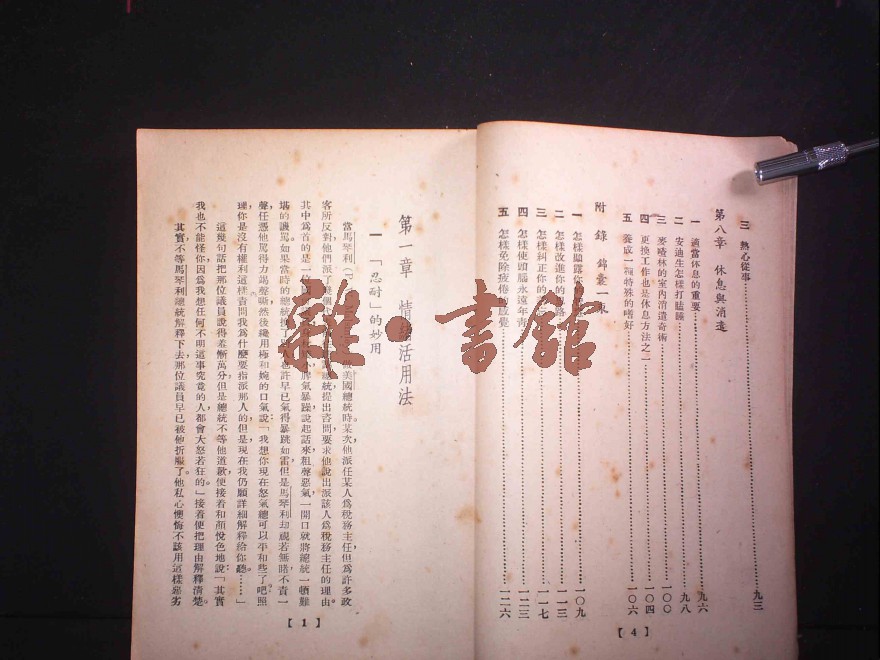 三 熱心從事 九三
第八章 休息與消遣
一 適當休息的重要 九六
二 安迪生怎樣打瞌睡 九八
三 麥喳林的室內消遣奇術 一〇〇
四 更換工作也是休息方法之一 一〇四
五 養成一種特殊的嗜好 一〇六
附錄 錦囊一束
一 怎樣顯露你 一〇九
二 怎樣改進你的 一一三
三 怎樣糾正你的 一一七
四 怎樣使頭腦永遠年靑 一二三
五 怎樣免除疲倦的感覺 一二六
【4】
第一章 情緒活用法
一 「忍耐」的妙用
當馬琴利 美國總統時某次，他派任某人爲稅務主任，但爲許多政
客所反對他們派了 統提出咨問要求他說出派該人爲稅務主任的理由。
其中爲首的是一位國 脾氣暴躁說起話來粗聲惡氣一開口就將總統一頓難
堪的譏罵。如果當時的總統換了 人也許早已氣得暴跳如雷但是馬琴利却視若無睹不責一
聲，任憑他罵得力竭聲嘶然後纔用極和婉的口氣說：「我想你現在怒氣總可以平和些了吧照
理你是沒有權利這樣責問我爲什麼要指派那人的但是現在我仍願詳細解釋給你聽……」
這幾句話把那位議員說得羞慚萬分但是總統不等他道歉便接着和顏悅色地說：「其實
我也不能怪你，因爲我想任何不明這事究竟的人，都會大怒若狂的。」接着便把理由解釋淸楚。
其實，不等馬琴利總統解釋下去，那位議員早已被他折服了。他私心懊悔不該用這樣惡劣
【1】
雜·書館